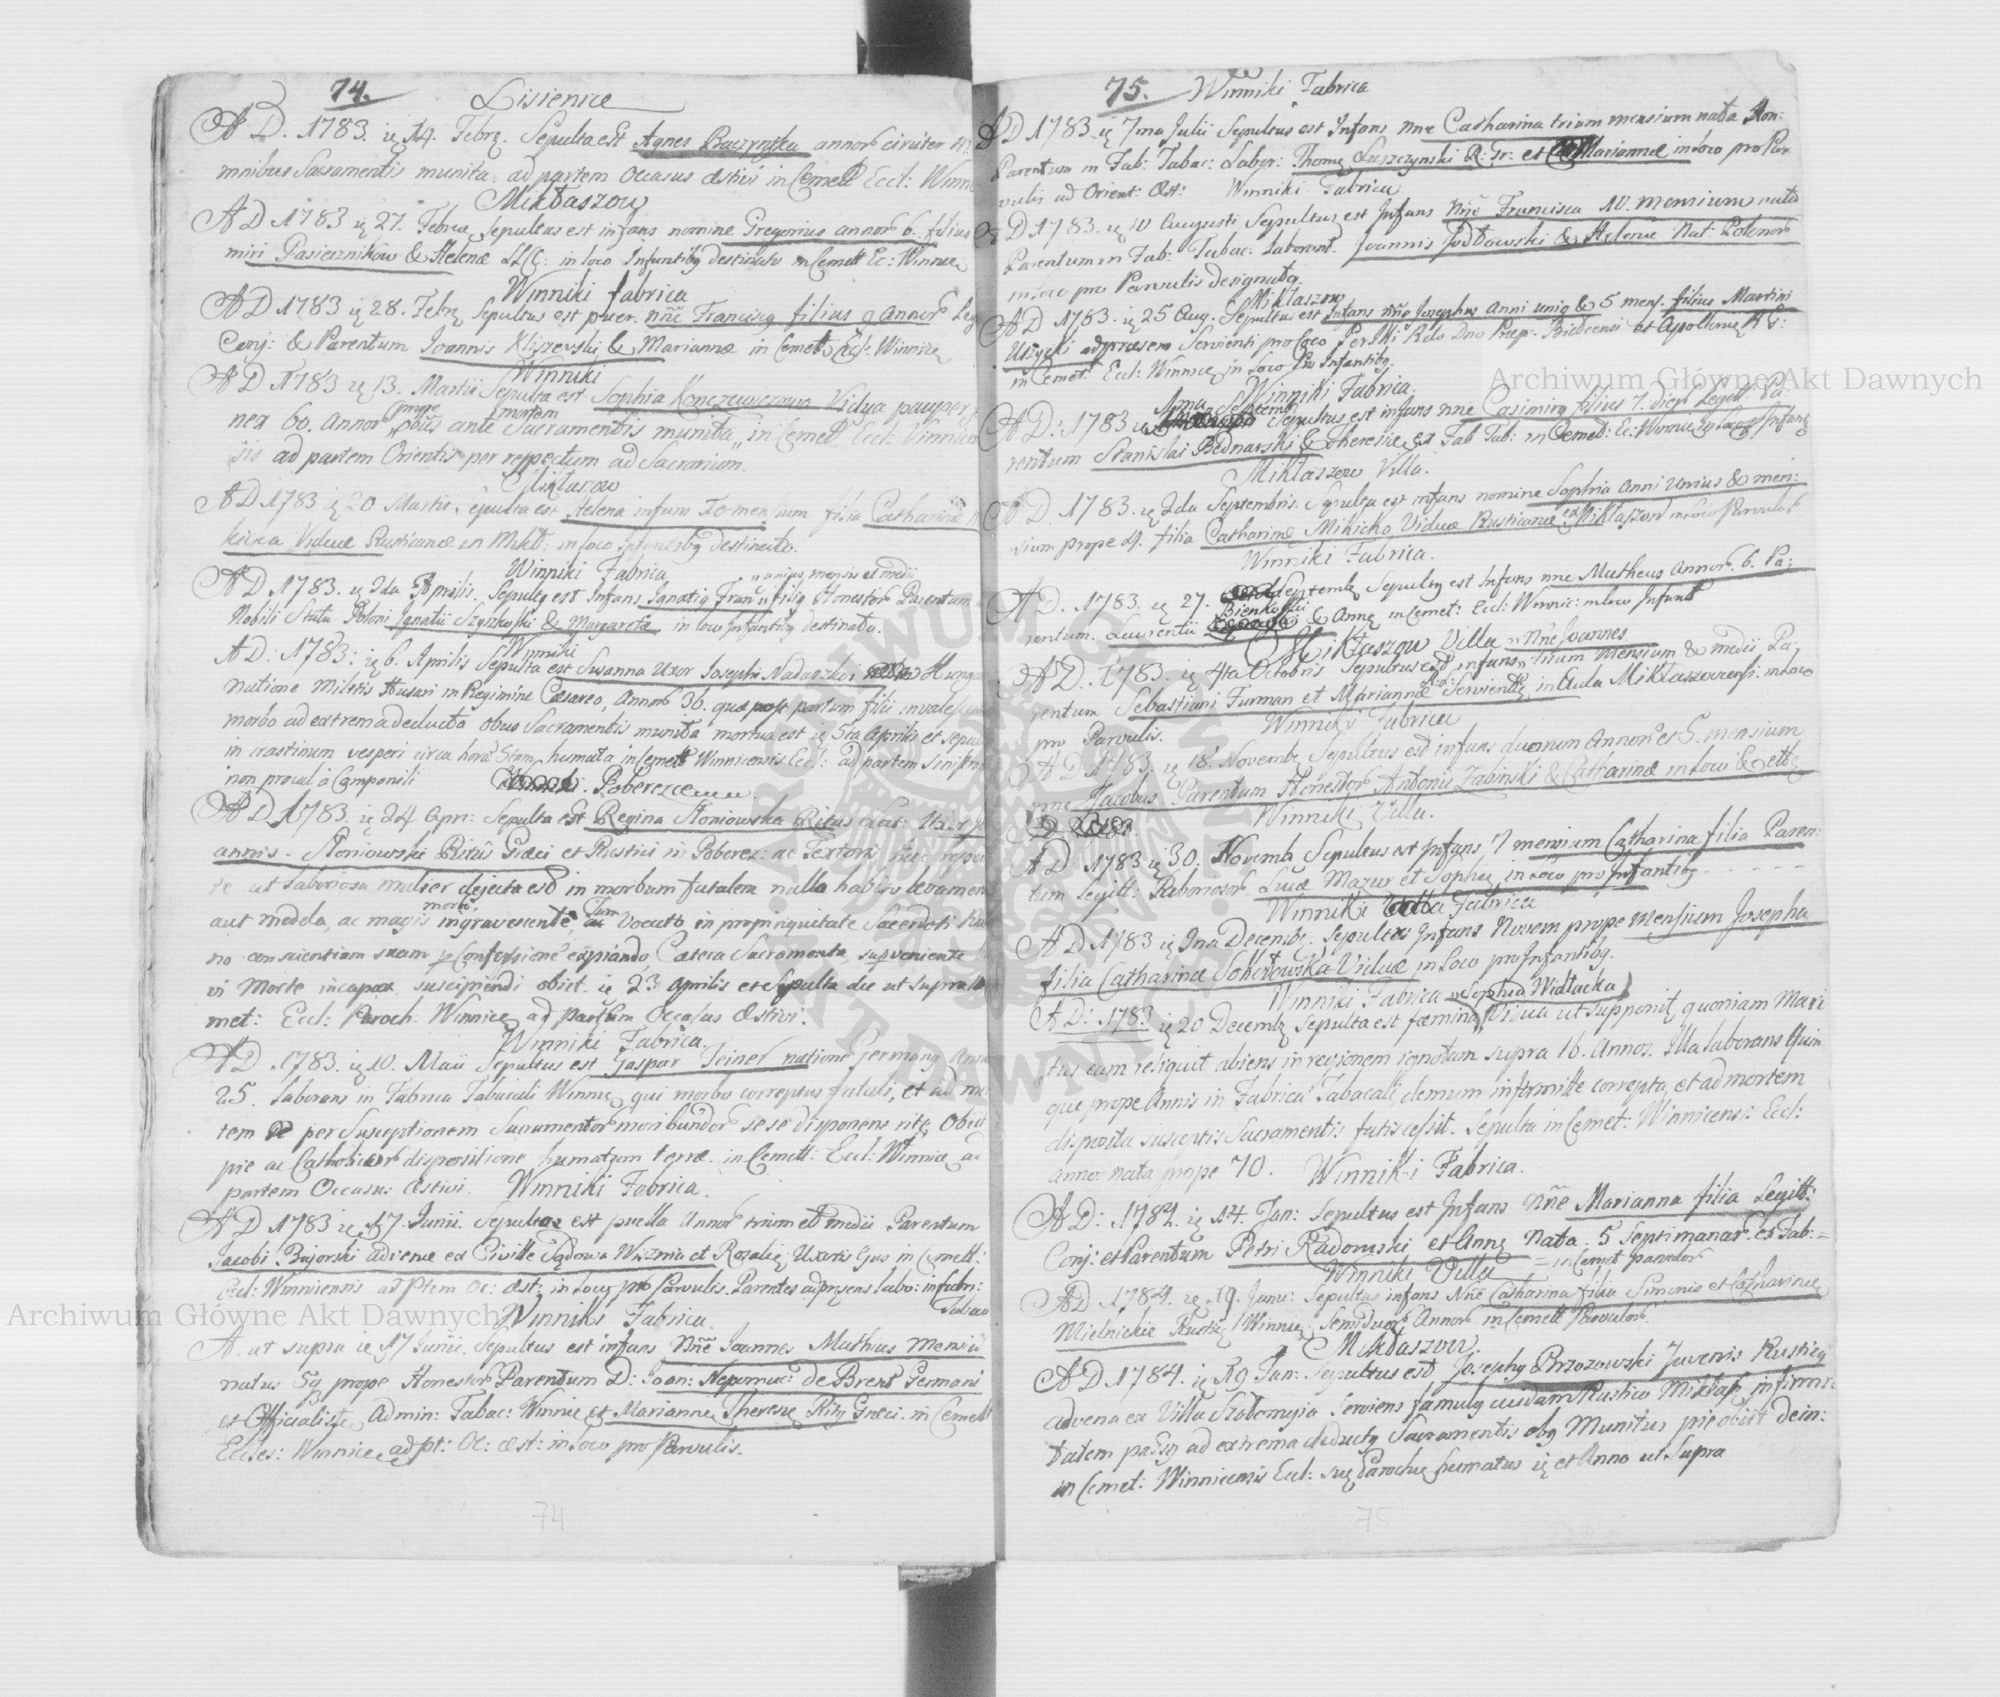 74.
Lisienice
A D. 1783. ię 14. Febrę. Sepulta est Agnes Raczynska annor circiter
mnibus Sacramentis munita. ad partem Occasus æstivi in Cemett Eccl: Winni
Mikłaszow
A D 1783 ię 27. Febru Sepultus est infans nomine Gregorius annor 6. filius
miri Pasiecznikow & Helenæ LLCC: in loco Infantibg destinato in Cemett Ec: Winnic
Winniki fabrica
A D 1783 ię 28. Febrę Sepultus est puer. nñe Franciscg filius 9 Annor Leg
Conj: & Parentum Joannis Kliszevski & Mariannæ in Cemett Eccl: Winnice
Winniki
A D 1783 ię 13. Martii Sepulta est Sophia Konczewiczowa Vidua pauper
ner 60. Annor prope obiit ante mortem Sacramentis munita in Cemet Eccl: Vinnicen
sis ad partem Orientis per respectum ad Sacrarium.
Mikłaszow
A D 1783 ię 20 Martii Sepulta est Helena infans mensium filia Catharinæ
kicka Viduæ Rusticanæ in Mikł: in loco Infantibg destinato.
Winniki Fabrica
A D 1783. ię 2da Aprilis. Sepultg est Infans Ignatig Fran unius mensis et medii filig Honestor Parentum
Nobili Statu Poloni Ignatii Szyszkoski & Margareta in loco Infantibg destinato.
Winniki
A D: 1783: ię 6. Aprilis Sepulta est Susanna Uxor Josephi Nadaszkoi Hunga
natione Militis Husari in Regimine Cæsareo, Annor 36. quæ post partum filii invalescente
morbo ad extrema deducta obus Sacramentis munita mortua est ię 5ta Aprilis et sepult
in crastinum vesperi circa hora 5tam, humata in Cemett Winnicensis Eccl: ad partem Sinistram
non procul à Campanili
Poberezce
A D 1783. ię 24 Apr: Sepulta est Regina Słoniowska Ritus Lat: Uxor Jo
annis Słoniowski Ritûs Græci et Rustici in Poberez: ac Textoris, hæc repen
te ut laboriosa mulier dejecta est in morbum fatalem nulla habito levamen
aut medela, ac magis morbo ingravescente, tum vocato in propinquitate Sacerdoti Ru
no conscientiam suam p Confessione expiando, Cætera Sacramenta, superveniente
vi Morte incapax suscipiendi obiit ię 23 Aprilis et Sepulta die ut Supra in
met: Eccl: Paroch: Winnicę ad partem Occasus Æstivi.
Winniki Fabrica.
A D. 1783. ię 10. Maii Sepultus est Gaspar Teiner natione Germang Anno
25. laborans in Fabrica Tabacali Winnic qui morbo correptus fatali, et ad mor
tem per Susceptionem Sacramentor moribundor sese disponens rite Obiit
pie ac Catholicæ dispositione humatum terræ in Cemett: Eccl: Winnic ad
partem Occasus Æstivi.
Winniki Fabrica.
A D 1783 ię 17. Junii Sepulta est puella Annor trium et medii Parentum
Jacobi Bujorski advenæ ex Civitte Sądowa Wisznia et Rozaliæ Uxoris Ejus in Cemett:
Eccl: Winnicensis ad Ptem Oc: æst: in locum pro Parvulis. Parentes ad præsens labo: in fabri:
Tabac
Winniki Fabrica.
A. ut supra ię 17 Junii. Sepultus est infans Nñe Joannes Mathias Mensis
natus 5q prope Honestor Parentum D: Joan: Nepomuc: de Brent Germani
et Officialiste Admin: Tabac: Winnic et Mariannę Theresię Ritg Græci in Cemett
Eccles: Winnice ad pt: Oc: æst: in loco pro Parvulis.
74
75.
Winniki Fabrica
A D 1783 ię 7ma Julii Sepultus est Infans nne Catharina trium mensium nata Hon:
Parentum in Fab: Tabac: Labor: Thomę Luszczynski R: Gr: et Mariannæ in loco pro Par
vulis ad Orient: Æst:
Winniki Fabrica
A D 1783. ię 10 Augusti Sepultus est Infans Nñe Francisca 10. mensium nata
Parentum in Fab: Tabac: Laborant. Joannis Podłowski & Helenæ Nat: Polonor
in loco pro Parvulis designato
Mikłaszow
A D 1783. ię 25 Aug. Sepultus est Infans nñe Josephus Anni unig & 5 mens. filius Martini
Uszycki ad præsens Servienti pro Coco Perski Rdo Dno Præp: Białecensi et Apollonię R G:
in Cemet: Eccl: Winnicę in Loco pro Infantibg.
Winniki Fabrica.
A D: 1783 ię 1ma Septemb Sepultus est infans nne Casimirg filius 7. dier Legitt: Pa:
rentum Stanislai Bednarski & Theresiæ ex Fab Tab: in Cemet: Ec: Winnic in loco Infant
Mikłaszow Villa.
A D. 1783 ię 2da Septembris. Sepulta est infans nomine Sophia Anni Unius & men:
sium prope 4. filia Catharinæ Mikicka Viduæ Rusticanæ ex Mikłaszow in loco Parvulor
Winniki Fabrica.
A D. 1783. ię 27. Septemb Sepultg est Infans nne Matheus Annor 6. Pa:
rentum. Laurentii Bienkoski & Annę in Cemet: Eccl: Winnic: in loco Infant
Mikłaszow Villa
A D. 1783. ię 4ta Octobris Sepultus est infans nñe Joannes trium Mensium & medii Pa:
rentum Sebastiani Furman et Mariannæ R: L: Servientg in Aula Mikłaszowensi. in Loco
pro Parvulis.
Winniki Fabrica
A D 1783 ię 18 Novembr Sepultus est infans duorum Annor et 5. mensium
nne Jacobus Parentum Honestor Antonii Zabinski & Catharinæ in loco & ett
Winniki Villa.
A D 1783 ię 30. Novemb Sepultus est Infans 7 mensium Catharina filia Paren:
tum Legitt: Laborioso Lucæ Mazur et Sophię in Loco pro Infantibg
Winniki Fabrica
A D 1783 ię 1ma Decembr. Sepultus Infans Novem prope Mensium Josepha
filia Catharinæ Sokołowska Viduæ in Loco pro Infantibg.
Winniki Fabrica
A D: 1783 ię 20 Decembr Sepulta est fæmina Sophia Widłacka Vidua ut supponit quoniam Mari
tus eam reliquit abiens in regionem ignotam supra 16. Annos. Illa laborans Quin
que prope Annis in Fabrica Tabacali, demum infirmitte correpta, et ad mortem
disposita susceptis Sacramentis fatis cessit. Sepulta in Cemet: Winnicensi: Eccl:
Anno: nata prope 70.
Winniki Fabrica.
A D: 1784. ię 14. Jan: Sepultus est Infans Nñe Marianna filia Legitt:
Conj: et Parentum Petri Radomski et Annę Nata 5 Septimanar ex Fab:
in Cemet Parvulor
Winniki Villa
A D 1784. ię 19. Janu: Sepultus infans Nñe Catharina filia Simonis et Catharinæ
Mielnickie Rustic Winnic Semi duor Annor in Cemett Parvulor.
Mikłaszow.
A D 1784. ię 19 Jan: Sepultus est Josephg Brzozowski Juvenis Rusticg
advena ex Villa Szołomyja Serviens famulg cuidam Rustico Mikłasz infirmi:
tatem passg ad extrema deductg Sacramentis obg Munitus pie obiit dein:
in Cemet: Winnicensis Eccl: suę Parochię humatus ię et Anno ut Supra
75
Archiwum Główne Akt Dawnych
Archiwum Główne Akt Dawnych
ARCHIWUM GŁÓWNE AKT DAWNYCH